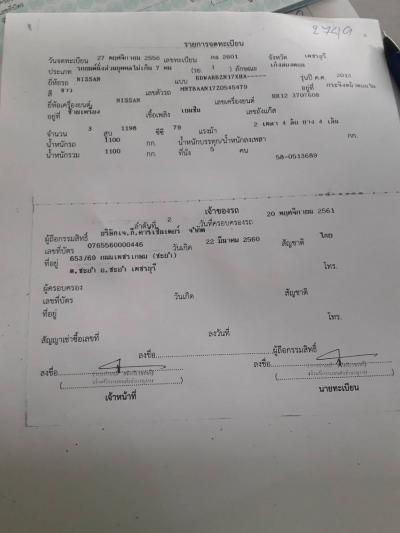 2749
รายการจดทะเบียน
วันจดทะเบียน 27 พฤศจิกายน 2556 เลขทะเบียน กธ 2601 จังหวัด เพชรบุรี
ประเภท รถยนต์นั่งส่วนบุคคลไม่เกิน 7 คน (รย. 1 ) ลักษณะ เก๋งสองตอน
ยี่ห้อรถ NISSAN แบบ รุ่นปี ค.ศ. 2013
สี ขาว เลขตัวรถ MNTBAAN17Z0545479 อยู่ที่
ยี่ห้อเครื่องยนต์ NISSAN เลขเครื่องยนต์ HR12 370760B
อยู่ที่ ซ้ายเครื่อง เชื้อเพลิง เบนซิน เลขถังแก๊ส
จำนวน 3 สูบ 1198 ซีซี 79 แรงม้า 2 เพลา 4 ล้อ ยาง 4 เส้น
น้ำหนักรถ 1100 กก. น้ำหนักบรรทุก/น้ำหนักลงเพลา กก.
น้ำหนักรวม 1100 กก. ที่นั่ง 5 คน
56-0513689
เจ้าของรถ
ลำดับที่ 2 วันที่ครอบครองรถ 20 พฤศจิกายน 2561
ผู้ถือกรรมสิทธิ์ บริษัทเจ.ที.คาร์เซ็นเตอร์ จำกัด
เลขที่บัตร 0765560000446 วันเกิด 22 มีนาคม 2560 สัญชาติ ไทย
ที่อยู่ 653/69 ถนนเพชรเกษม (ชะอำ)
ต.ชะอำ อ.ชะอำ เพชรบุรี โทร.
ผู้ครอบครอง
เลขที่บัตร วันเกิด สัญชาติ
ที่อยู่ โทร.
สัญญาเช่าซื้อเลขที่ ลงวันที่
ลงชื่อ ผู้ถือกรรมสิทธิ์
ลงชื่อ ลงชื่อ
เจ้าหน้าที่ นายทะเบียน